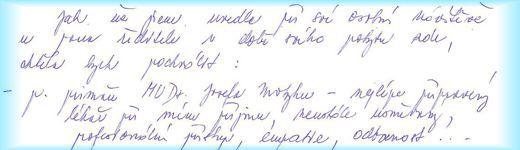 Jak už jsem uvedla při své osobní návštěvě
u pana ředitele v době svého pobytu zde,
chtěla bych pochválit :
- p. primáře MUDr. Josefa - nejlépe připravený
lékař při mém příjmu,
profesionální přístup, empatie, odbornost !..-